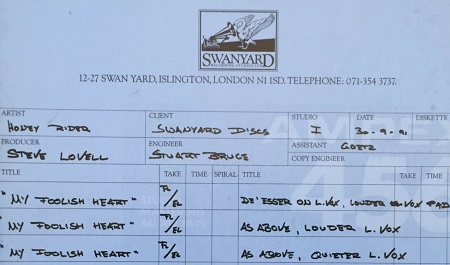 SWANYARD
12-27 SWAN YARD, ISLINGTON, LONDON N1 1SD. TELEPHONE: 071-354 3737.
ARTIST CLIENT STUDIO DATE DISKETTE
HONEY RIDER SWANYARD DISCS I 30.9.91
PRODUCER ENGINEER ASSISTANT GOETZ
STEVE LOVELL STUART BRUCE COPY ENGINEER
TITLE TAKE TIME SPIRAL TITLE TAKE TIME
"MY FOOLISH HEART" DE'ESSER ON L.VOX, LOUDER VOX PAD
TITLE
"MY FOOLISH HEART" AS ABOVE, LOUDER L. VOX
TITLE
"MY FOOLISH HEART" AS ABOVE, QUIETER L. VOX
AMPEX
456